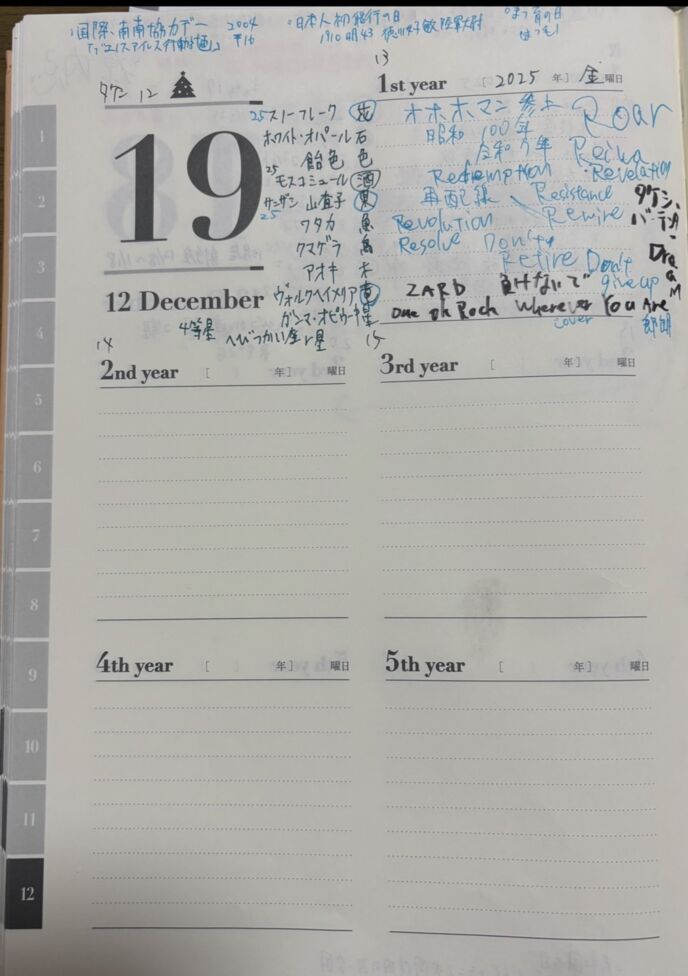 ・国際南南協力デー 2004
「ブエノスアイレス行動計画」 平16
・日本人初飛行の日
1910 明43 徳川好敏 陸軍大尉
まつ育の日
まつ毛!
タケシ 12
19
12 December
25 スノーフレーク 花
ホワイト・オパール 石
飴色 色
25 モスコミュール 酒
サンザシ 山査子 果
25
ワタカ 魚
クマゲラ 鳥
アオキ 木
ヴォルクヘイメリア 恐
ガンマ・オピウキ 星
4等星 へびつかい座γ星
13
1st year [2025 年] 金曜日
オホホマン 参上 Roar
昭和 100年
令和7年 Reiwa
Redemption Revelation
再配線 Resistance
Revolution Rewire
Resolve Don't
Retire Don't
give up
タケシ、
バーテン
Dream
ZARD 負けないで
One Ok Rock Wherever You Are
cover
14
2nd year [ 年] 曜日
15
3rd year [ 年] 曜日
4th year [ 年] 曜日
5th year [ 年] 曜日
1
2
3
4
5
6
7
8
9
10
11
12